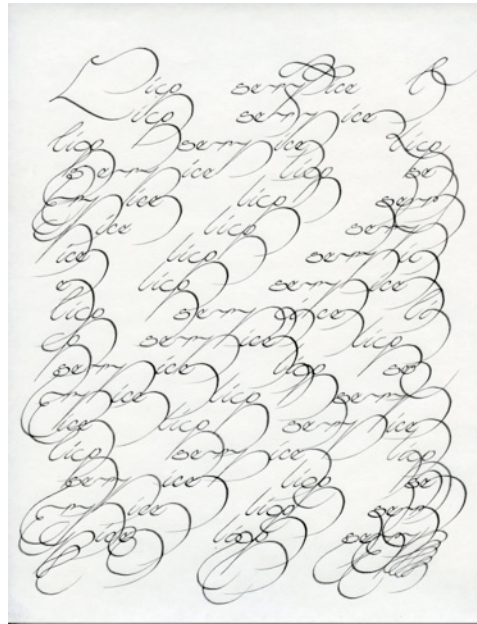 Lip service l
ip service
lip service lip
service lip se
rvice lip ser
vice lip serv
ice lip servic
e lip service
lip service li
p service lip
service lip se
rvice lip serv
ice lip service
lip service lip
service lip se
rvice lip ser
vice lip serv